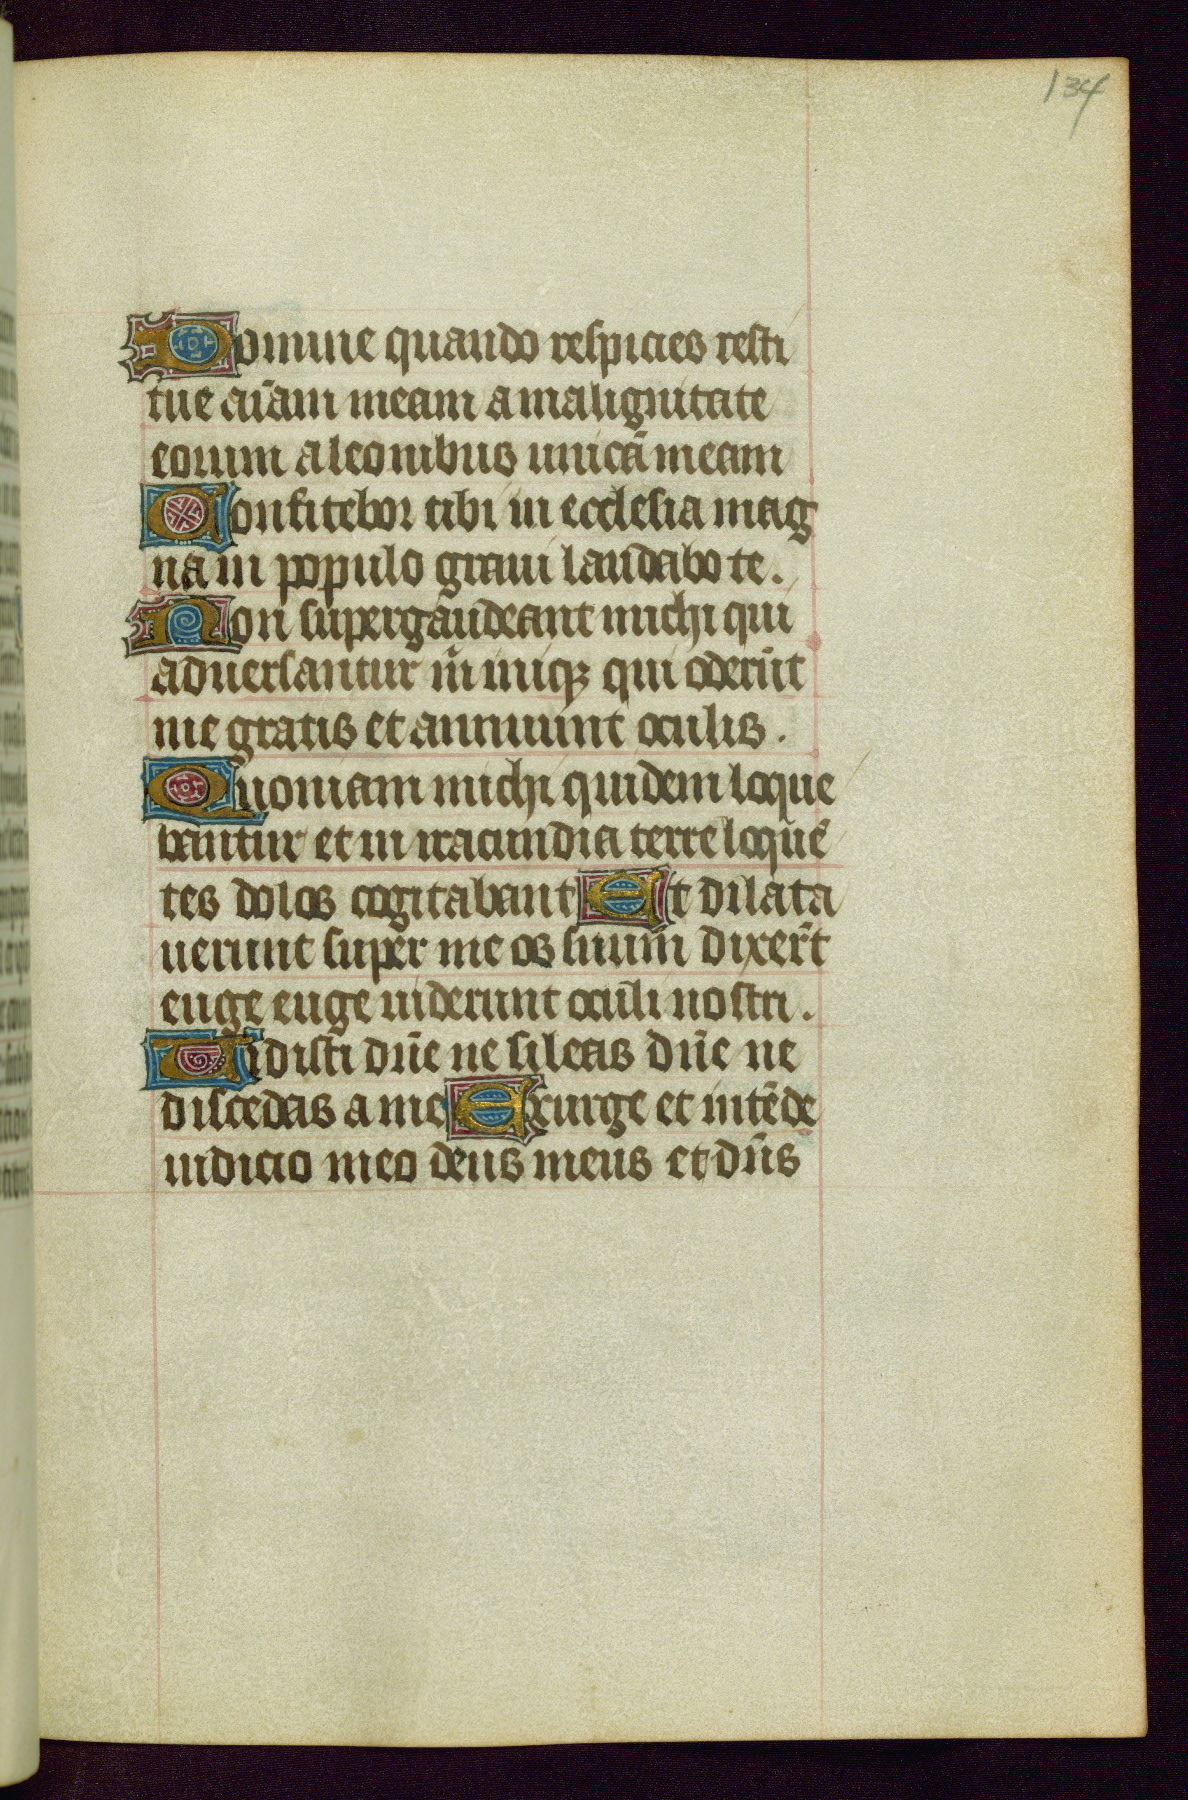 134
Domine quando respicies resti
tue aīam meam a malignitate
eorum a leonibus unicā meam
Confitebor tibi in ecclesia mag
na in populo graui laudabo te.
Non supergaudeant michi qui
aduersantur m̄ iniq; qui oderūt
me gratis et annuunt oculis.
Quoniam michi quidem loque
bantur et in iracundia terre loquē
tes dolos cogitabant Et dilata
uerunt super me os suum dixer̄t
euge euge uiderunt oculi nostri.
Uidisti dn̄e ne sileas dn̄e ne
discedas a me Exurge et intēde
iudicio meo deus meus et dn̄s